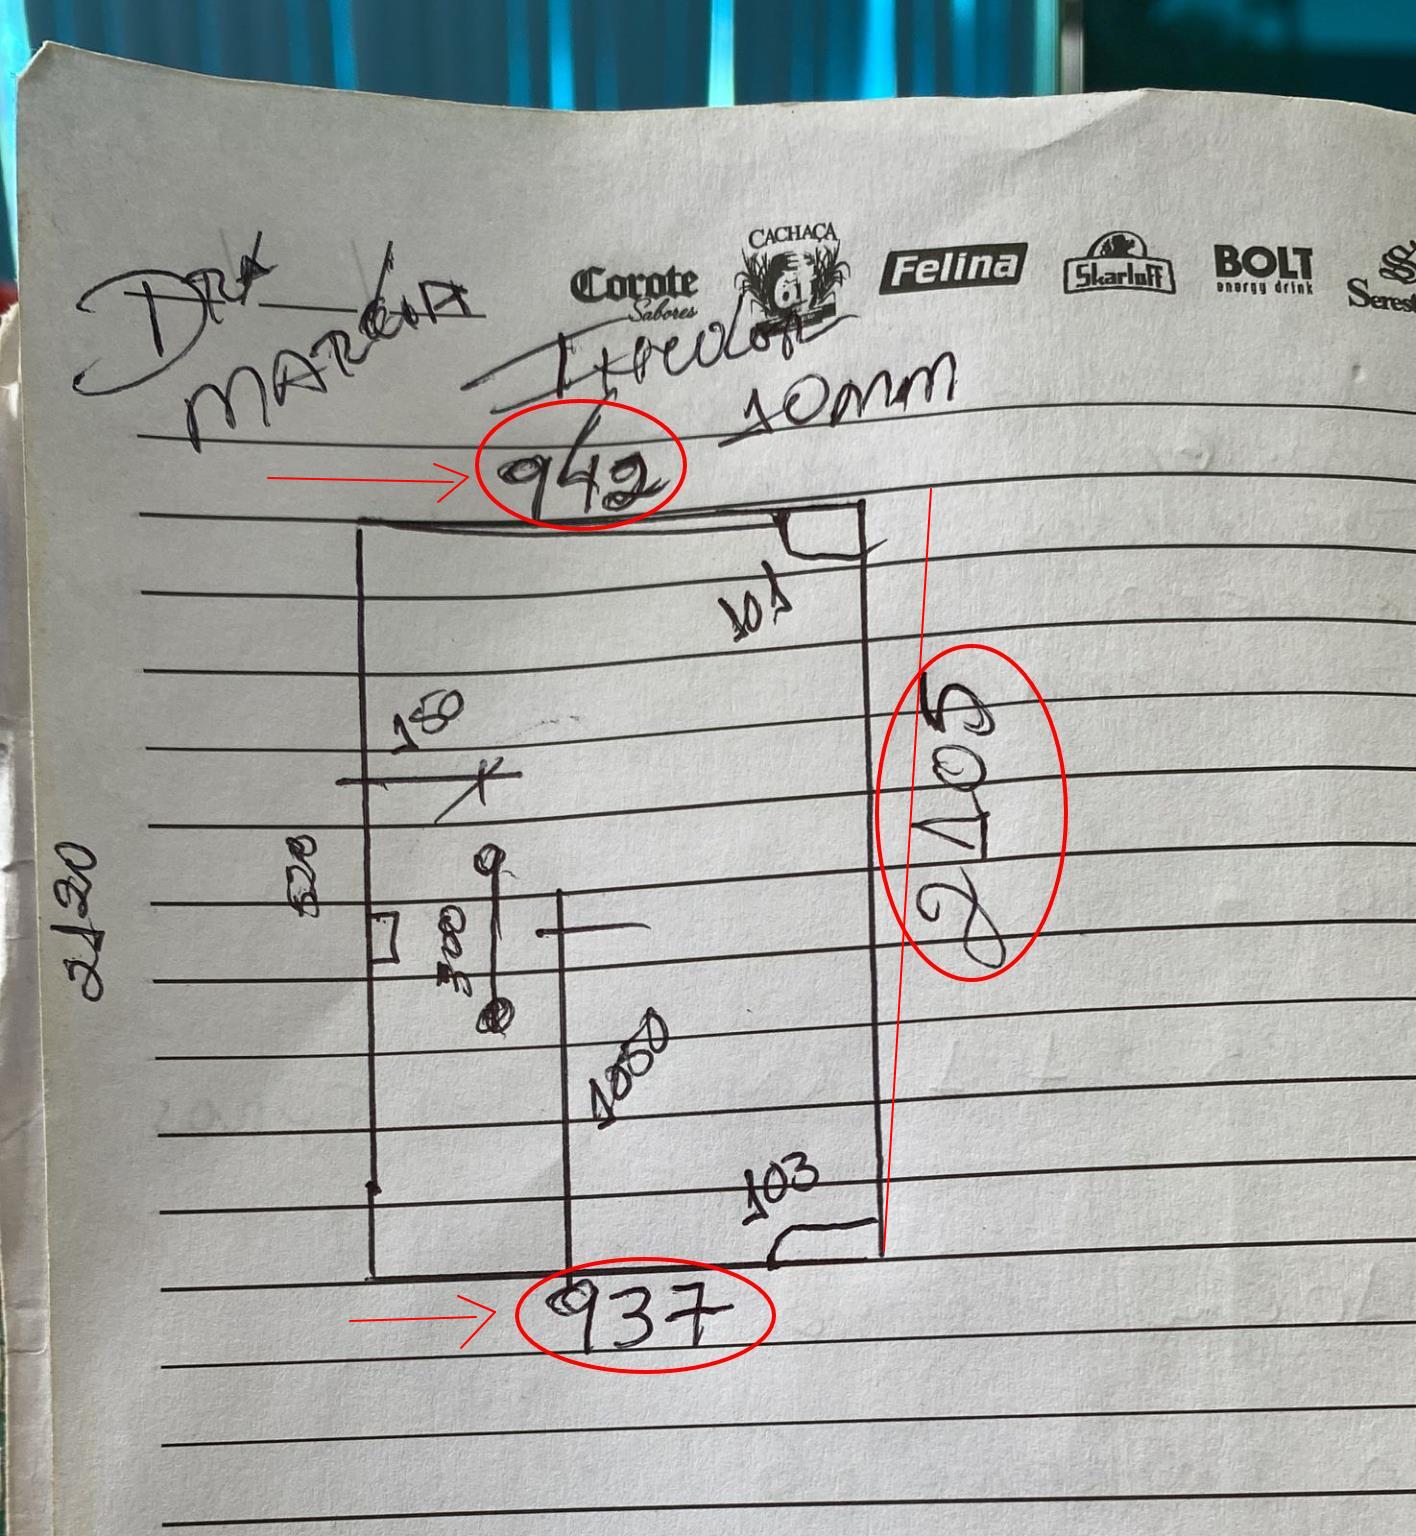 CACHAÇA
Corote
Sabores
61
Felina
Skarloff
BOLT
energy drink
DRA
MARCIA
Incolor
10mm
942
101
150
2105
520
2120
300
1050
103
937